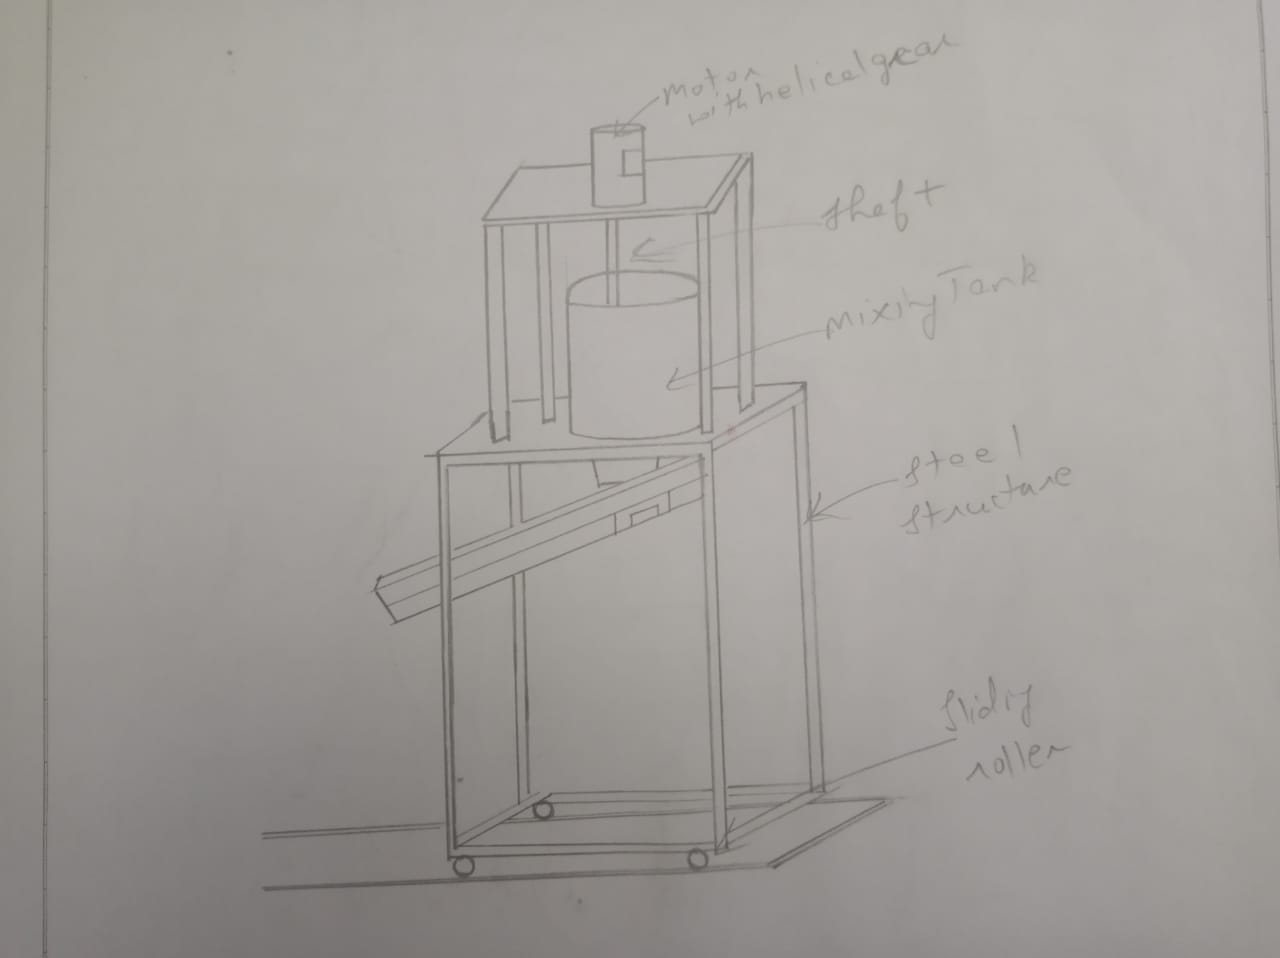 motor
with helical gear
sheft
mixing Tank
steel
structure
sliding
roller